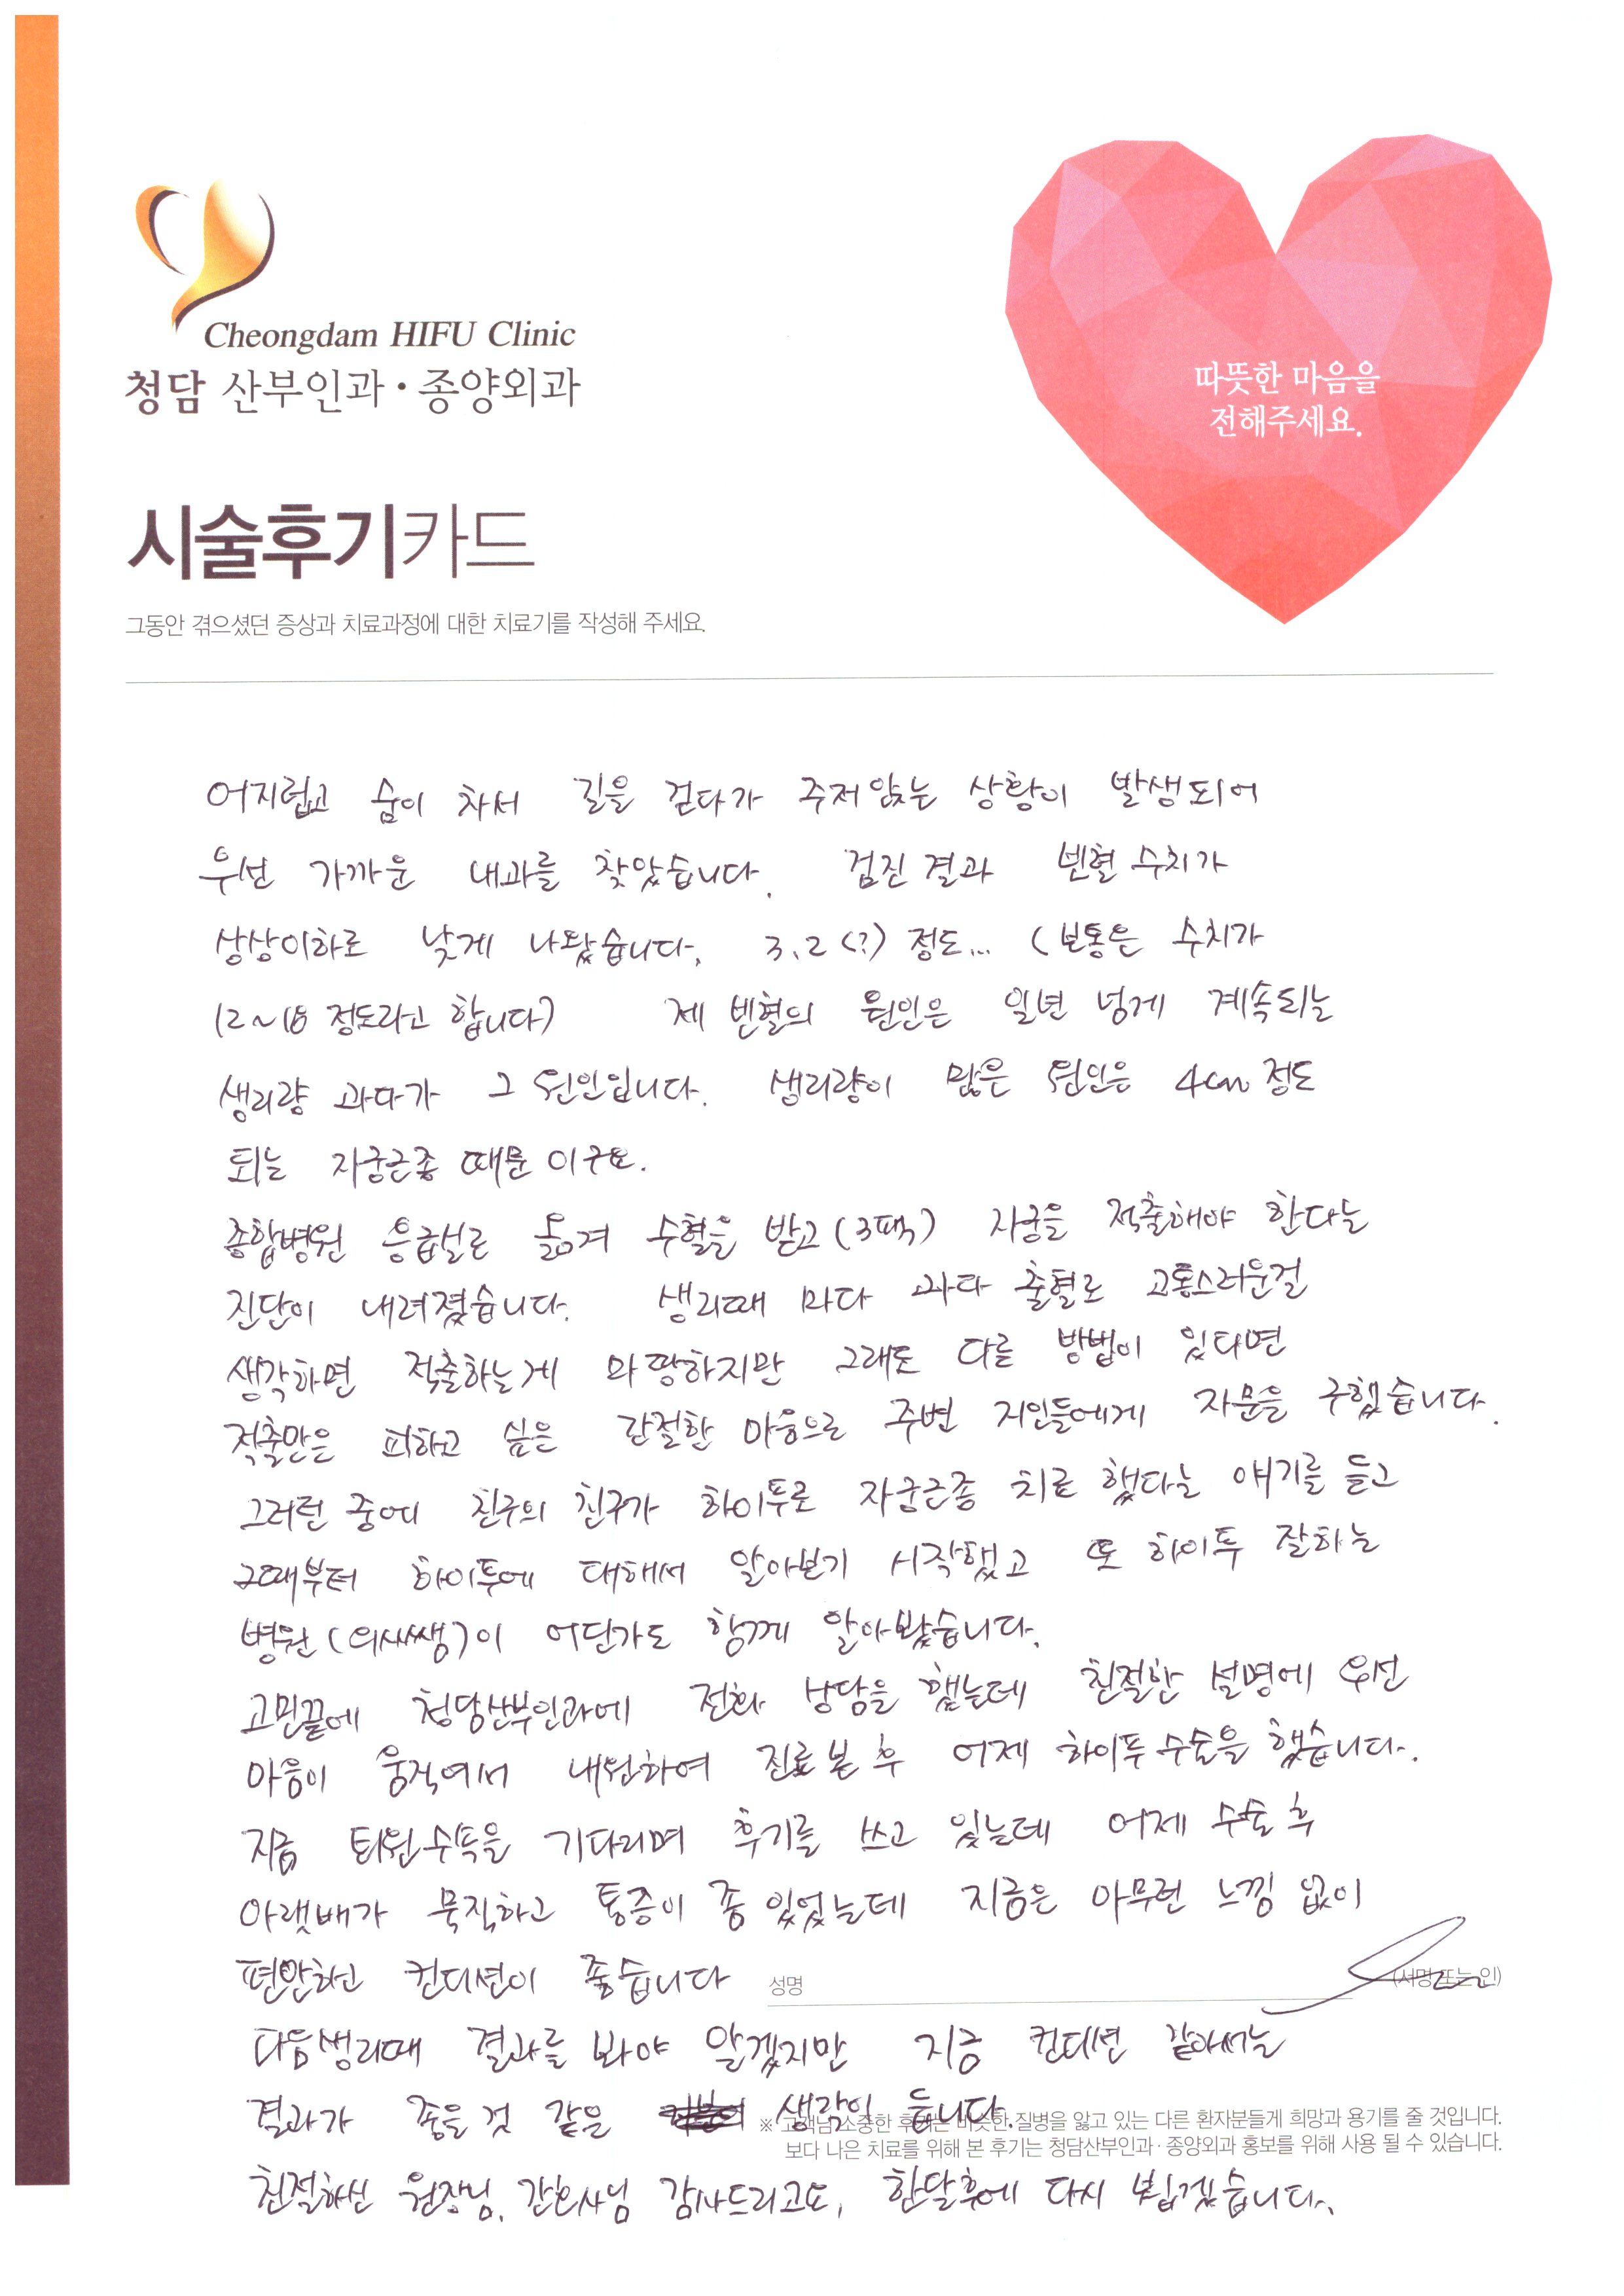 Cheongdam HIFU Clinic
청담 산부인과·종양외과
따뜻한 마음을
전해주세요.
시술후기카드
그동안 겪으셨던 증상과 치료과정에 대한 치료기를 작성해 주세요.
어지럽고 숨이 차서 길을 걷다가 주저앉는 상황이 발생되어
우선 가까운 내과를 찾았습니다. 검진 결과 빈혈 수치가
상상이하로 낮게 나왔습니다. 3.2(?) 정도... (보통은 수치가
12~18 정도라고 합니다) 제 빈혈의 원인은 일년 넘게 계속되는
생리량 과다가 그 원인입니다. 생리량이 많은 원인은 4cm 정도
되는 자궁근종 때문이구요.
종합병원 응급실로 옮겨 수혈을 받고(3팩) 자궁을 적출해야 한다는
진단이 내려졌습니다. 생리때 마다 과다 출혈로 고통스러운걸
생각하면 적출하는게 마땅하지만 그래도 다른 방법이 있다면
적출만은 피하고 싶은 간절한 마음으로 주변 지인들에게 자문을 구했습니다.
그러던 중에 친구의 친구가 하이푸로 자궁근종 치료 했다는 얘기를 듣고
그때부터 하이푸에 대해서 알아보기 시작했고 또 하이푸 잘하는
병원(의사쌤)이 어딘가도 함께 알아봤습니다.
고민끝에 청담산부인과에 전화 상담을 했는데 친절한 설명에 우선
마음이 움직여서 내원하여 진료 본 후 어제 하이푸 수술을 했습니다.
지금 퇴원수속을 기다리며 후기를 쓰고 있는데 어제 수술 후
아랫배가 묵직하고 통증이 좀 있었는데 지금은 아무런 느낌 없이
편안하고 컨디션이 좋습니다 성명 (서명 또는 인)
다음생리때 결과를 봐야 알겠지만 지금 컨디션 같아서는
결과가 좋을 것 같은 생각이 듭니다.
※ 고객님 소중한 후기는 비슷한 질병을 앓고 있는 다른 환자분들게 희망과 용기를 줄 것입니다.
보다 나은 치료를 위해 본 후기는 청담산부인과·종양외과 홍보를 위해 사용 될 수 있습니다.
친절하신 원장님, 간호사님 감사드리고요, 한달후에 다시 뵙겠습니다.